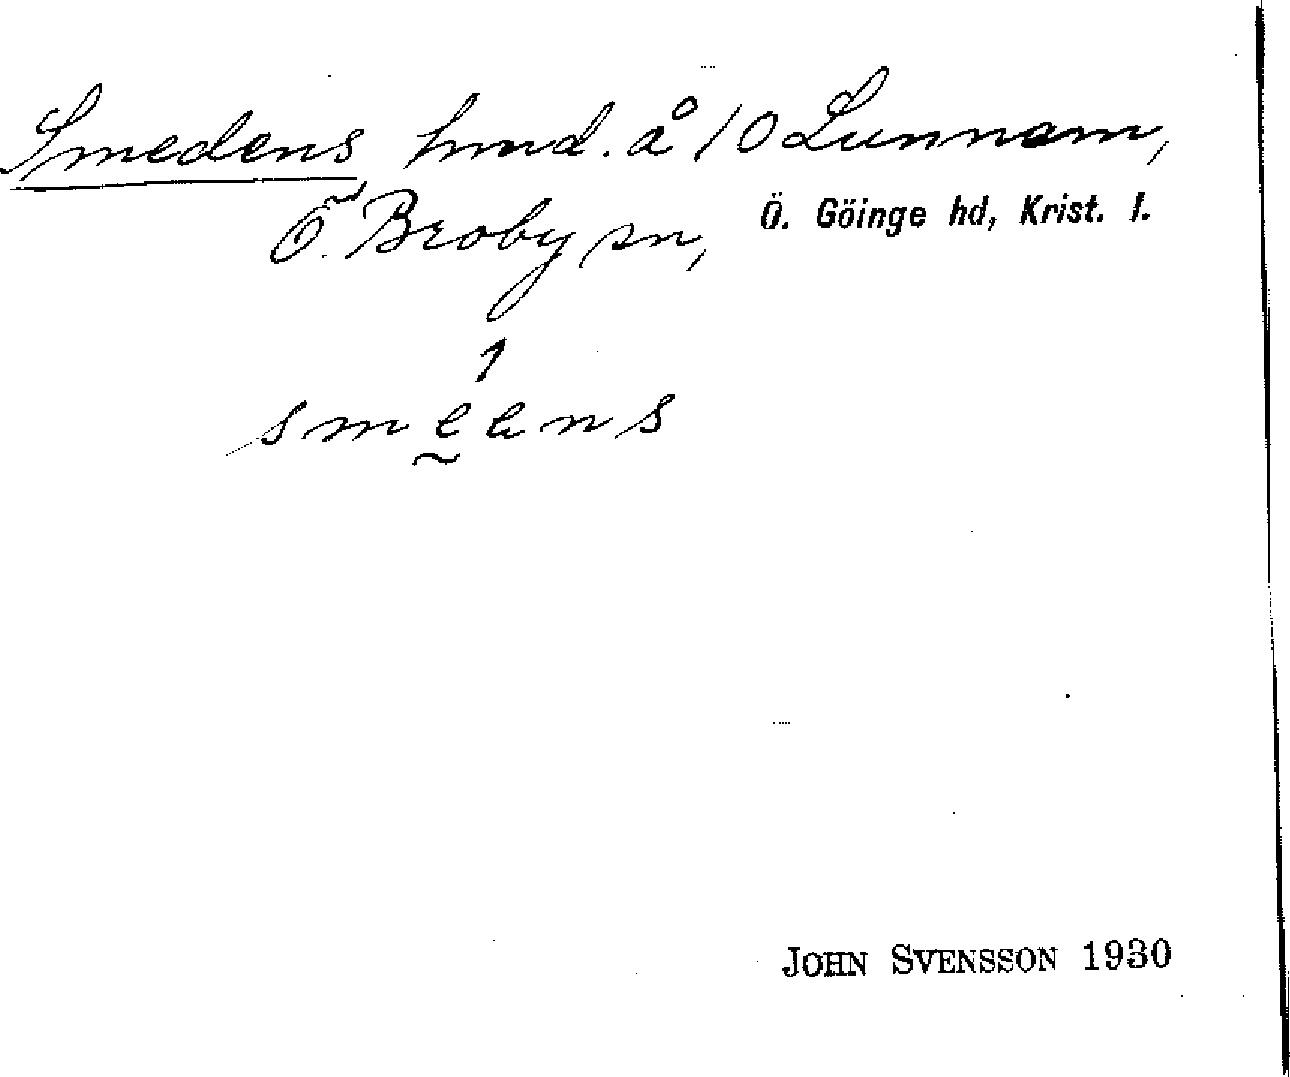 Smedens hmd. å 10 Lunnom,
Ö. Broby sn, Ö. Göinge hd, Krist. l.
smeens
JOHN SVENSSON 1930